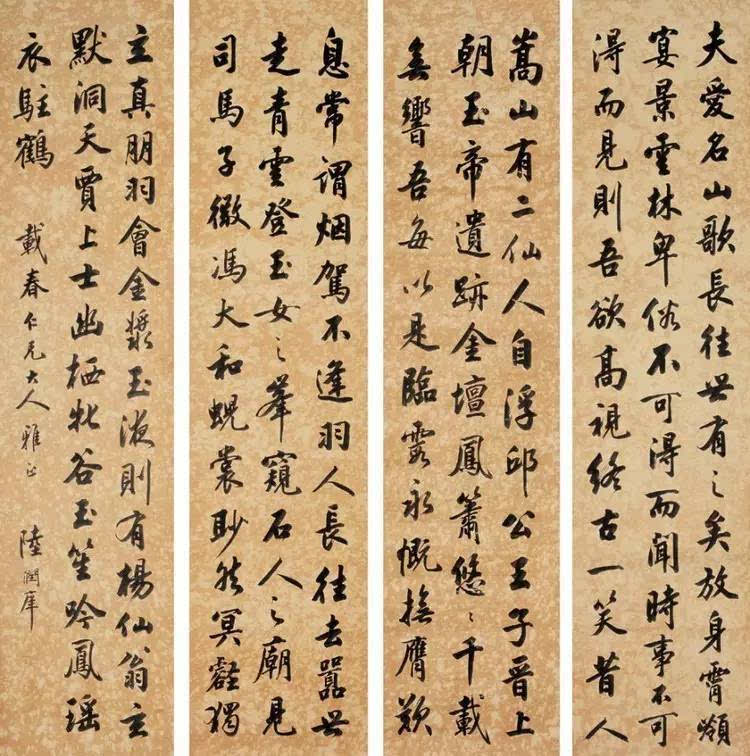 夫愛名山歌長往世有之矣放身霄嶺
宴景雲林卑俗不可得而聞時事不可
得而見則吾欲高視終古一笑昔人
嵩山有二仙人自浮邱公王子晉上
朝玉帝遺跡金壇鳳簫悠〻千載
無響吾每以是臨霞永慨撫膺歎
息常謂烟駕不逢羽人長往去囂世
走青雲登玉女之峯窺石人之廟見
司馬子徵馮大和蜺裳眇然冥壑獨
立真朋羽會金漿玉液則有楊仙翁玄
默洞天賈上士幽栖牝谷玉笙吟鳳瑶
衣駐鶴 載春仁兄大人雅正 陸潤庠